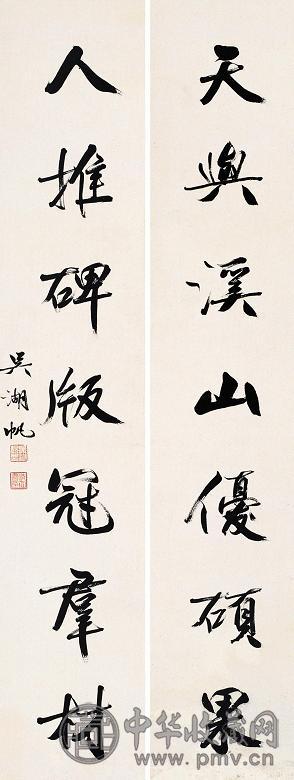 天與溪山優碩
人推碑版冠羣材
吳湖帆
中华收藏网
www.pmv.cn